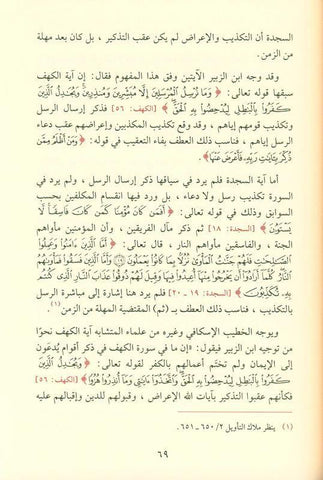 السجدة أن التكذيب والإعراض لم يكن عقب التذكير ، بل كان بعد مهلة
من الزمن.
وقد وجه ابن الزبير الآيتين وفق هذا المفهوم فقال: إن آية الكهف
سبقها قوله تعالى: ﴿ وَمَا نُرْسِلُ الْمُرْسَلِينَ إِلَّا مُبَشِّرِينَ وَمُنذِرِينَ وَيُجَادِلُ الَّذِينَ
كَفَرُوا بِالْبَاطِلِ لِيُدْحِضُوا بِهِ الْحَقَّ ﴾ [الكهف: ٥٦] فذكر إرسال الرسل
وتكذيب قومهم إياهم ، وقد وقع تكذيب المكذبين وإعراضهم عقب دعاء
الرسل إياهم ، فناسب ذلك العطف بفاء التعقيب في قوله: ﴿ وَمَنْ أَظْلَمُ مِمَّن
ذُكِّرَ بِآيَاتِ رَبِّهِ فَأَعْرَضَ عَنْهَا ﴾.
أما آية السجدة فلم يرد في سياقها ذكر إرسال الرسل ، ولم يرد في
السورة تكذيب رسل ولا دعاء ، بل ورد فيها انقسام المكلفين بحسب
السوابق وذلك في قوله تعالى: ﴿ أَفَمَن كَانَ مُؤْمِنًا كَمَن كَانَ فَاسِقًا لَّا
يَسْتَوُونَ ﴾ [السجدة: ١٨] ثم ذكر مآل الفريقين ، وأن المؤمنين مأواهم
الجنة ، والفاسقين مأواهم النار ، قال تعالى: ﴿ أَمَّا الَّذِينَ آمَنُوا وَعَمِلُوا
الصَّالِحَاتِ فَلَهُمْ جَنَّاتُ الْمَأْوَى نُزُلًا بِمَا كَانُوا يَعْمَلُونَ ﴿١٩﴾ وَأَمَّا الَّذِينَ فَسَقُوا فَمَأْوَاهُمُ
النَّارُ كُلَّمَا أَرَادُوا أَن يَخْرُجُوا مِنْهَا أُعِيدُوا فِيهَا وَقِيلَ لَهُمْ ذُوقُوا عَذَابَ النَّارِ الَّذِي كُنتُم
بِهِ تُكَذِّبُونَ ﴾ [السجدة: ١٩ - ٢٠] فلم يرد هنا إشارة إلى مباشرة الرسل
بالتكذيب ، فناسب ذلك العطف بـ (ثم) المقتضية المهلة من الزمن.(١)
ويوجه الخطيب الإسكافي وغيره من علماء المتشابه آية الكهف نحوًا
من توجيه ابن الزبير فيقول: «إن ما في سورة الكهف في ذكر أقوام يُدعَون
إلى الإيمان ولم تختم أعمالهم بالكفر لقوله تعالى: ﴿ وَيُجَادِلُ الَّذِينَ
كَفَرُوا بِالْبَاطِلِ لِيُدْحِضُوا بِهِ الْحَقَّ وَاتَّخَذُوا آيَاتِي وَمَا أُنذِرُوا هُزُوًا ﴾ [الكهف: ٥٦]
فكأنهم عقبوا التذكير بآيات الله الإعراض ، وقبولهم للدين وإقبالهم عليه
(١) ينظر ملاك التأويل ٢/ ٦٥٠ - ٦٥١.
٦٩